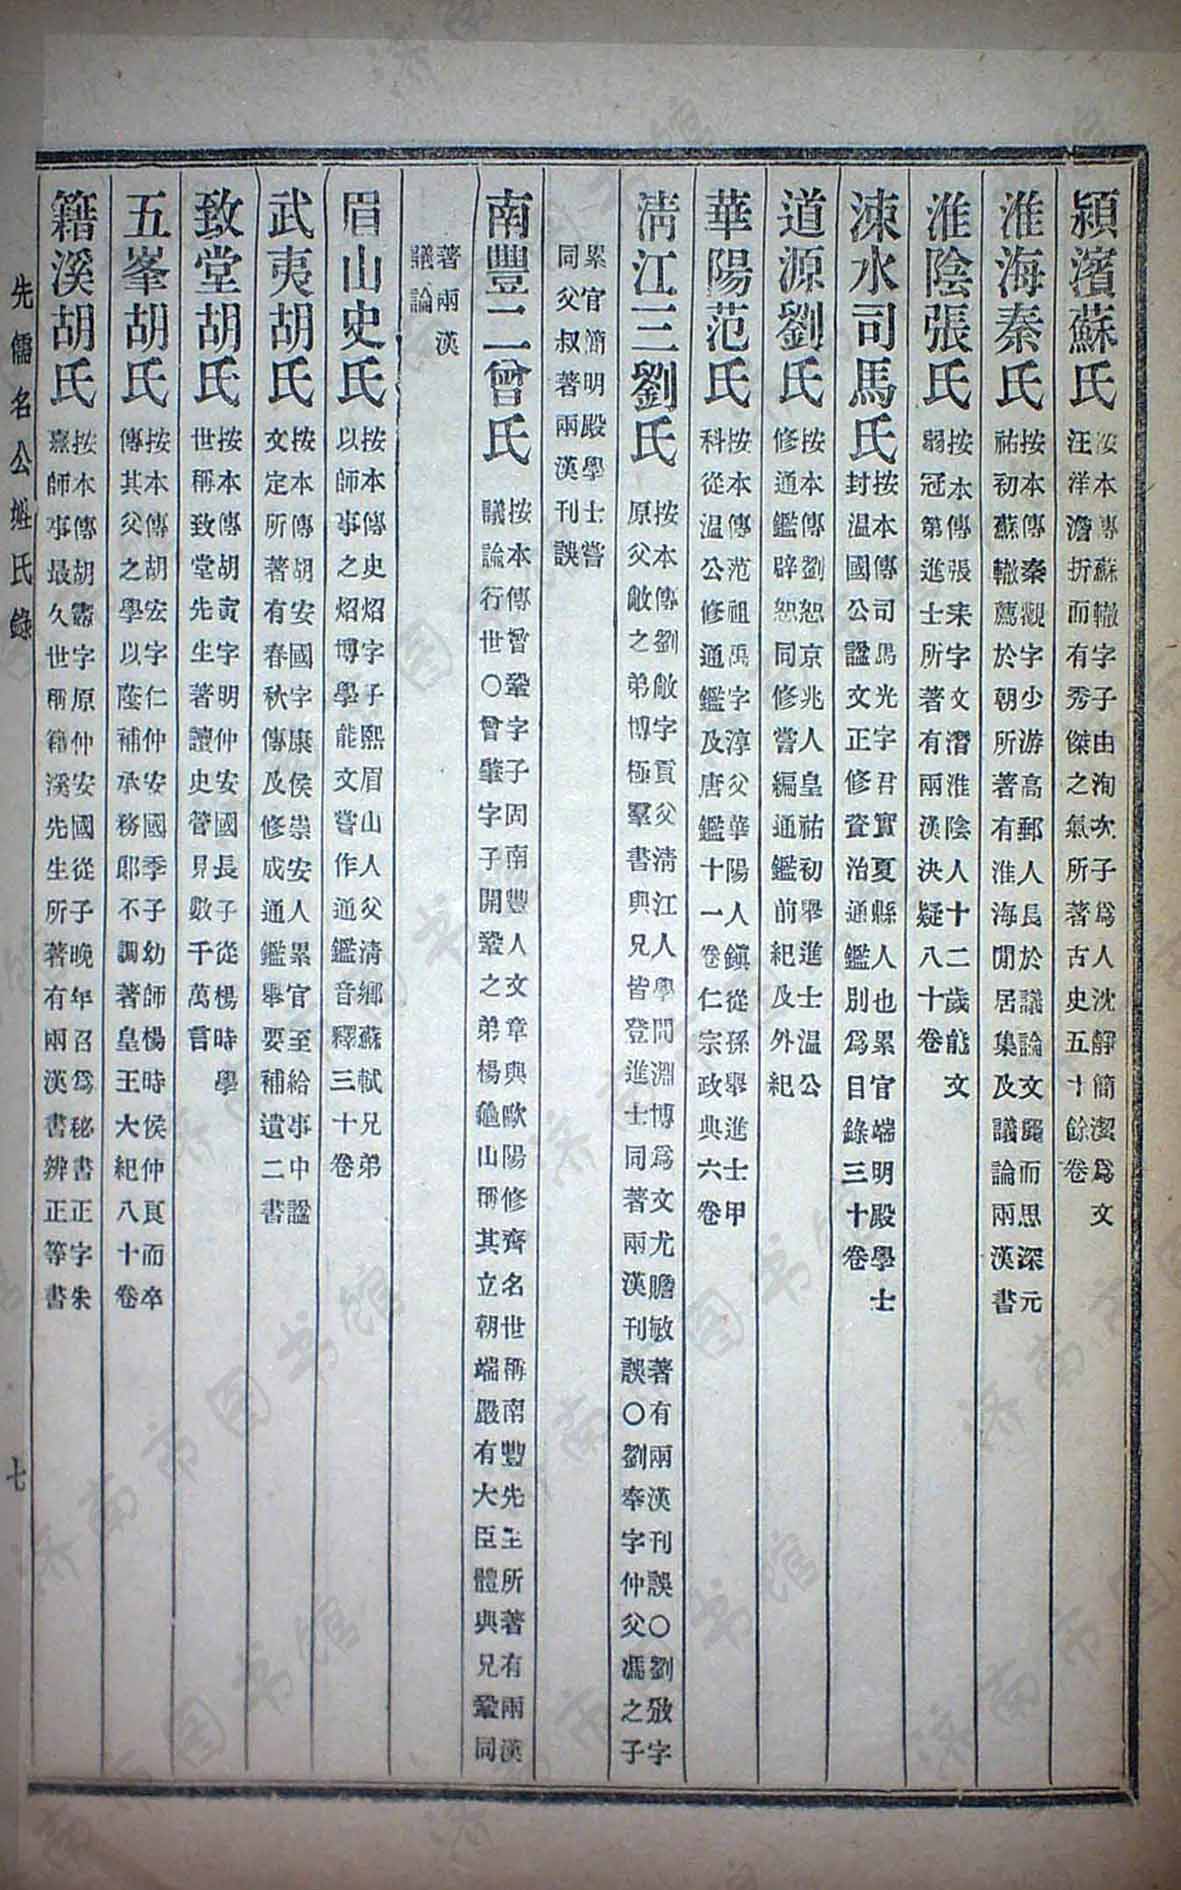 潁濱蘇氏 按本傳蘇轍字子由洵次子爲人沈靜簡潔爲文
汪洋澹折而有秀傑之氣所著古史五十餘卷
淮海秦氏 按本傳秦觀字少游高郵人長於議論文麗而思深元
祐初蘇轍薦於朝所著有淮海閒居集及議論兩漢書
淮陰張氏 按本傳張耒字文潛淮陰人十二歲能文
弱冠第進士所著有兩漢決疑八十卷
涑水司馬氏 按本傳司馬光字君實夏縣人也累官端明殿學士
封溫國公諡文正修資治通鑑別爲目錄三十卷
道源劉氏 按本傳劉恕京兆人皇祐初舉進士溫公
修通鑑辟恕同修嘗編通鑑前紀及外紀
華陽范氏 按本傳范祖禹字淳父華陽人鎮從孫舉進士甲
科從溫公修通鑑及唐鑑十一卷仁宗政典六卷
清江三劉氏 按本傳劉敞字貢父清江人學問淵博爲文尤贍敏著有兩漢刊誤〇劉攽字
原父敞之弟博極羣書與兄皆登進士同著兩漢刊誤〇劉奉字仲父馮之子
累官簡明殿學士嘗
同父叔著兩漢刊誤
南豐二曾氏 按本傳曾鞏字子固南豐人文章與歐陽修齊名世稱南豐先生所著有兩漢
議論行世〇曾肇字子開鞏之弟楊龜山稱其立朝端嚴有大臣體與兄鞏同
著兩漢
議論
眉山史氏 按本傳史炤字子熙眉山人父清鄉蘇軾兄弟
以師事之炤博學能文嘗作通鑑音釋三十卷
武夷胡氏 按本傳胡安國字康侯崇安人累官至給事中諡
文定所著有春秋傳及修成通鑑舉要補遺二書
致堂胡氏 按本傳胡寅字明仲安國長子從楊時學
世稱致堂先生著讀史管見數千萬言
五峯胡氏 按本傳胡宏字仁仲安國季子幼師楊時侯仲良而卒
傳其父之學以蔭補承務郎不調著皇王大紀八十卷
籍溪胡氏 按本傳胡憲字原仲安國從子晚年召爲秘書正字朱
熹師事最久世稱籍溪先生所著有兩漢書辨正等書
先儒名公姓氏錄
七